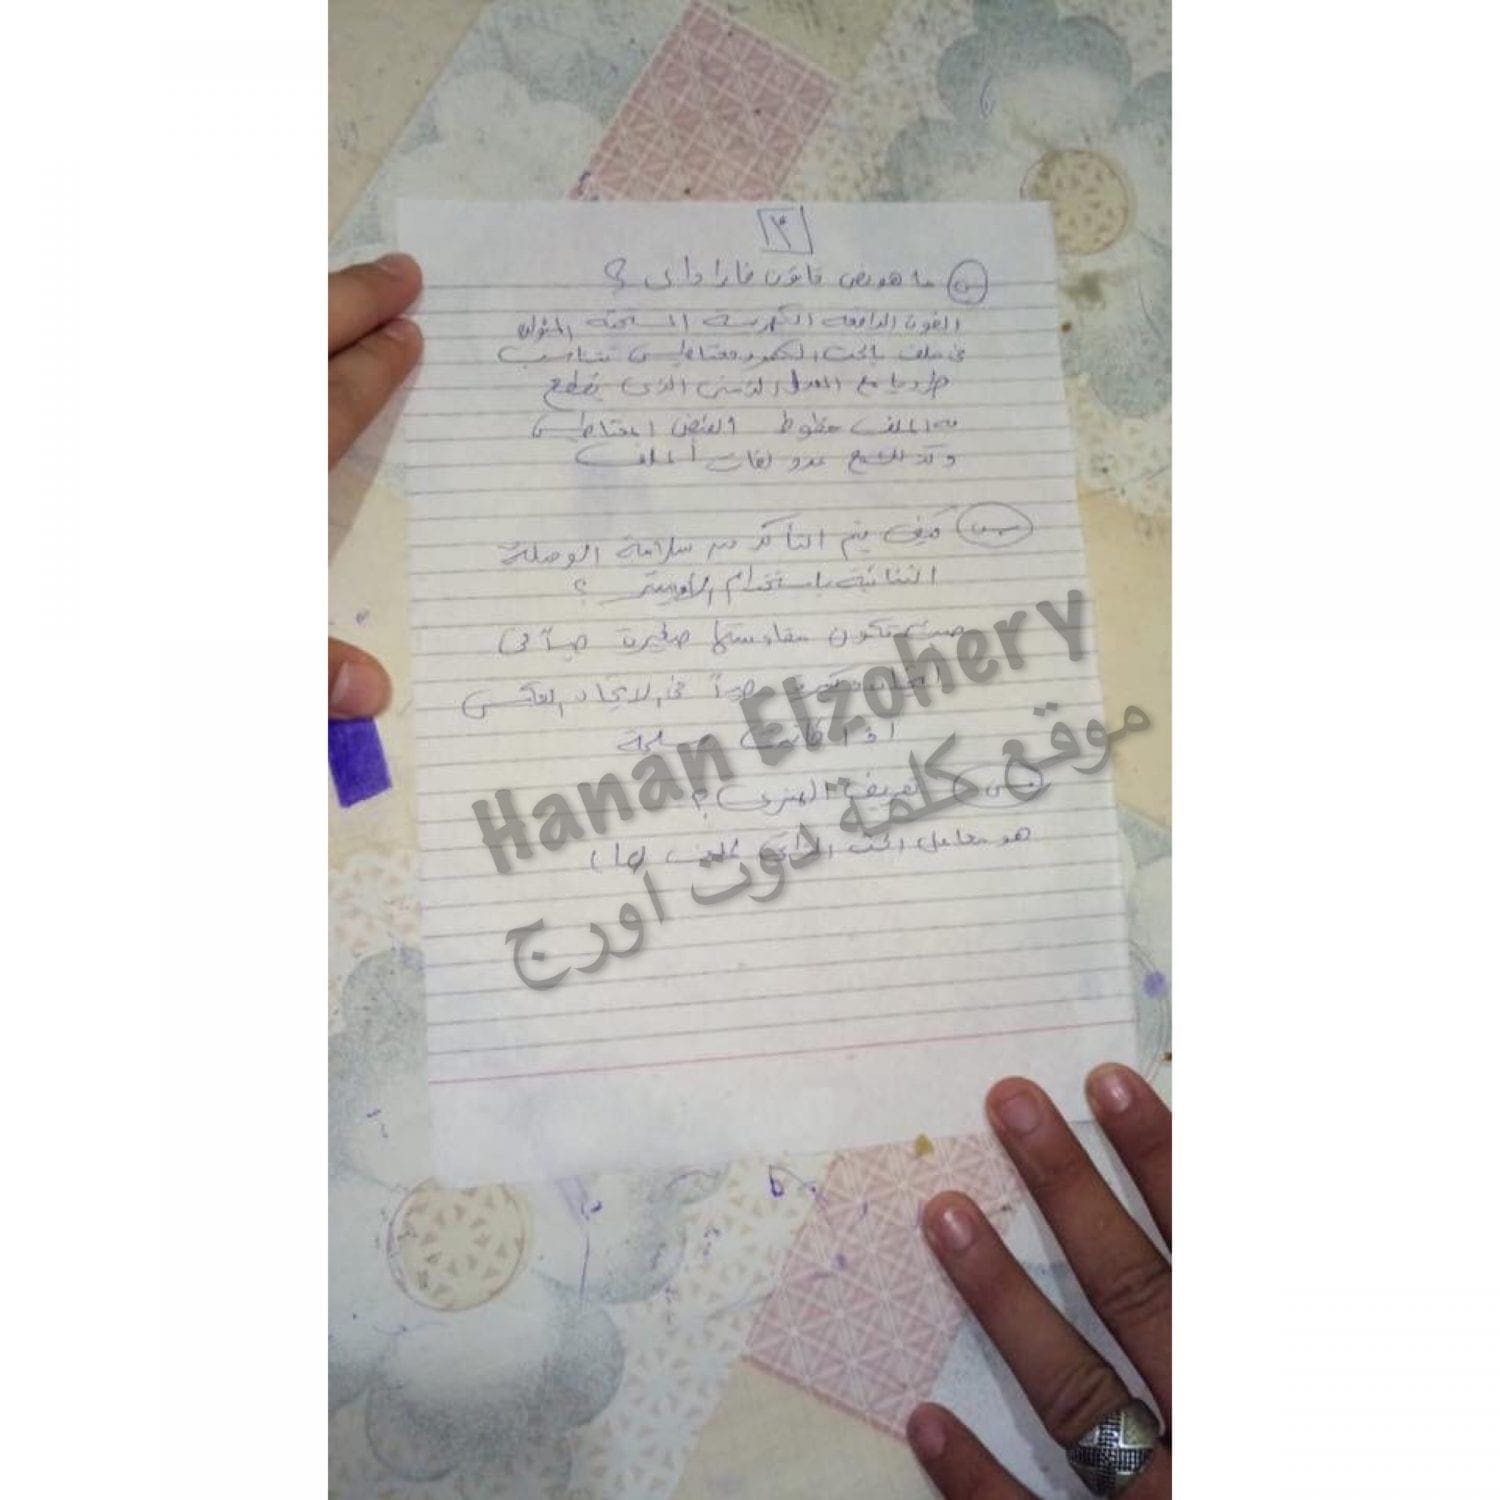 ٣
س ما هو نص قانون فاراداى ؟
القوة الدافعة الكهربية المستحثة المتولدة
فى ملف بالحث الكهرومغناطيسى تتناسب
طرديا مع المعدل الزمنى الذى يقطع
به الملف خطوط الفيض المغناطيسى
وكذلك مع عدد لفات الملف
س كيف يتم التأكد من سلامة الوصلة
الثنائية باستخدام الأوميتر ؟
حيث تكون مقاومتها صغيرة جداً فى
جداً فى الاتجاه العكسى
اذا كانت سليمة
س تعريف الهنرى ؟
هو معامل الحث الذاتى لملف
Hanan Elzohery
موقع كلمة دوت أورج